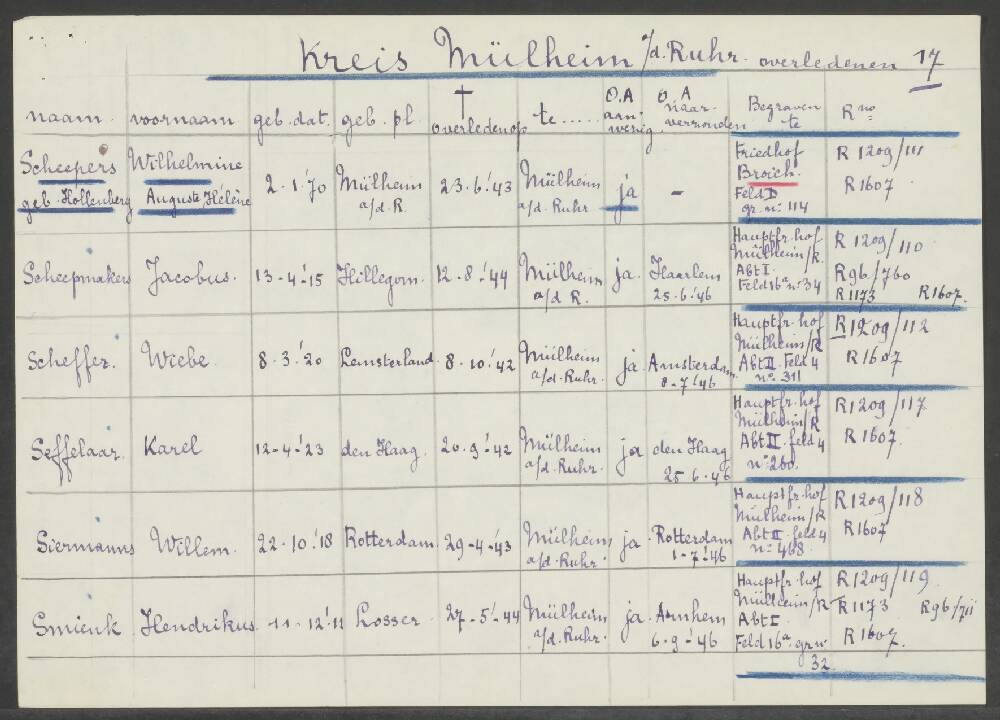 Kreis Mülheim a/d. Ruhr. overledenen 17
naam. voornaam geb. dat. geb. pl. † overleden op te ..... O.A aanwezig. O.A naar verzonden Begraven te R no
Scheepers geb. Hollenberg Wilhelmine Auguste Hélène 2.1.'70 Mülheim a/d. R. 23.6.'43 Mülheim a/d. Ruhr ja - Friedhof Broich. Feld D gr. no 114 R 1209/111 R 1607
Scheepmakers Jacobus. 13-4-'15 Hillegom. 12-8-'44 Mülheim a/d R. ja. Haarlem 25-6-'46 Hauptfr. hof Mülheim/R. Abt I. Feld 16a no 34 R 1209/110 R 96/760 R 1173 R 1607.
Scheffer. Wiebe 8.3.'20 Lemsterland 8-10-'42 Mülheim a/d. Ruhr. ja. Amsterdam 8-7-'46 Hauptfr. hof Mülheim/R Abt II. Feld 4 no 311 R 1209/112 R 1607
Seffelaar. Karel 12-4-'23 den Haag. 20-9-'42 Mülheim a/d. Ruhr. ja den Haag 25-6-'46 Hauptfr. hof Mülheim/R Abt II. feld 4 no 260. R 1209/117 R 1607.
Siermanns Willem. 22-10-'18 Rotterdam. 29-4-'43 Mülheim a/d. Ruhr. ja. Rotterdam 1-7-'46 Hauptfr. hof Mülheim/R Abt II. feld 4 no 468. R 1209/118 R 1607
Smienk Hendrikus. 11-12-'11 Losser 27-5-'44 Mülheim a/d. Ruhr. ja. Arnhem 6-9-'46 Hauptfr. hof Mülheim/R Abt I Feld 16a. grno 32. R 1209/119. R 1173 R 96/711 R 1607.